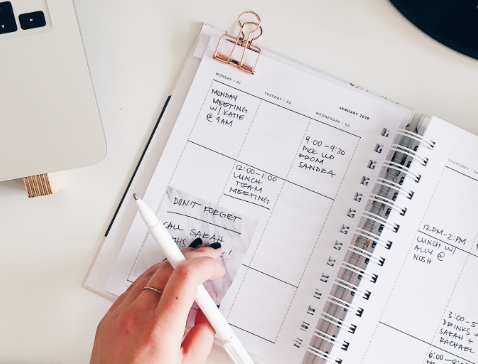 JANUARY 2018
MONDAY | 01
TUESDAY | 02
WEDNESDAY | 03
MONDAY
MEETING
W/ KATIE
@ 9AM
9:00-9:30
PICK UP
FROM
SANDRA
12:00-1:00
LUNCH
TEAM
MEETING
DON'T FORGET
CALL SARAH
THIS
12PM-2PM
LUNCH W/
ALLY @
NOSH
3:00-5
DRINKS
SARAH &
RACHAEL